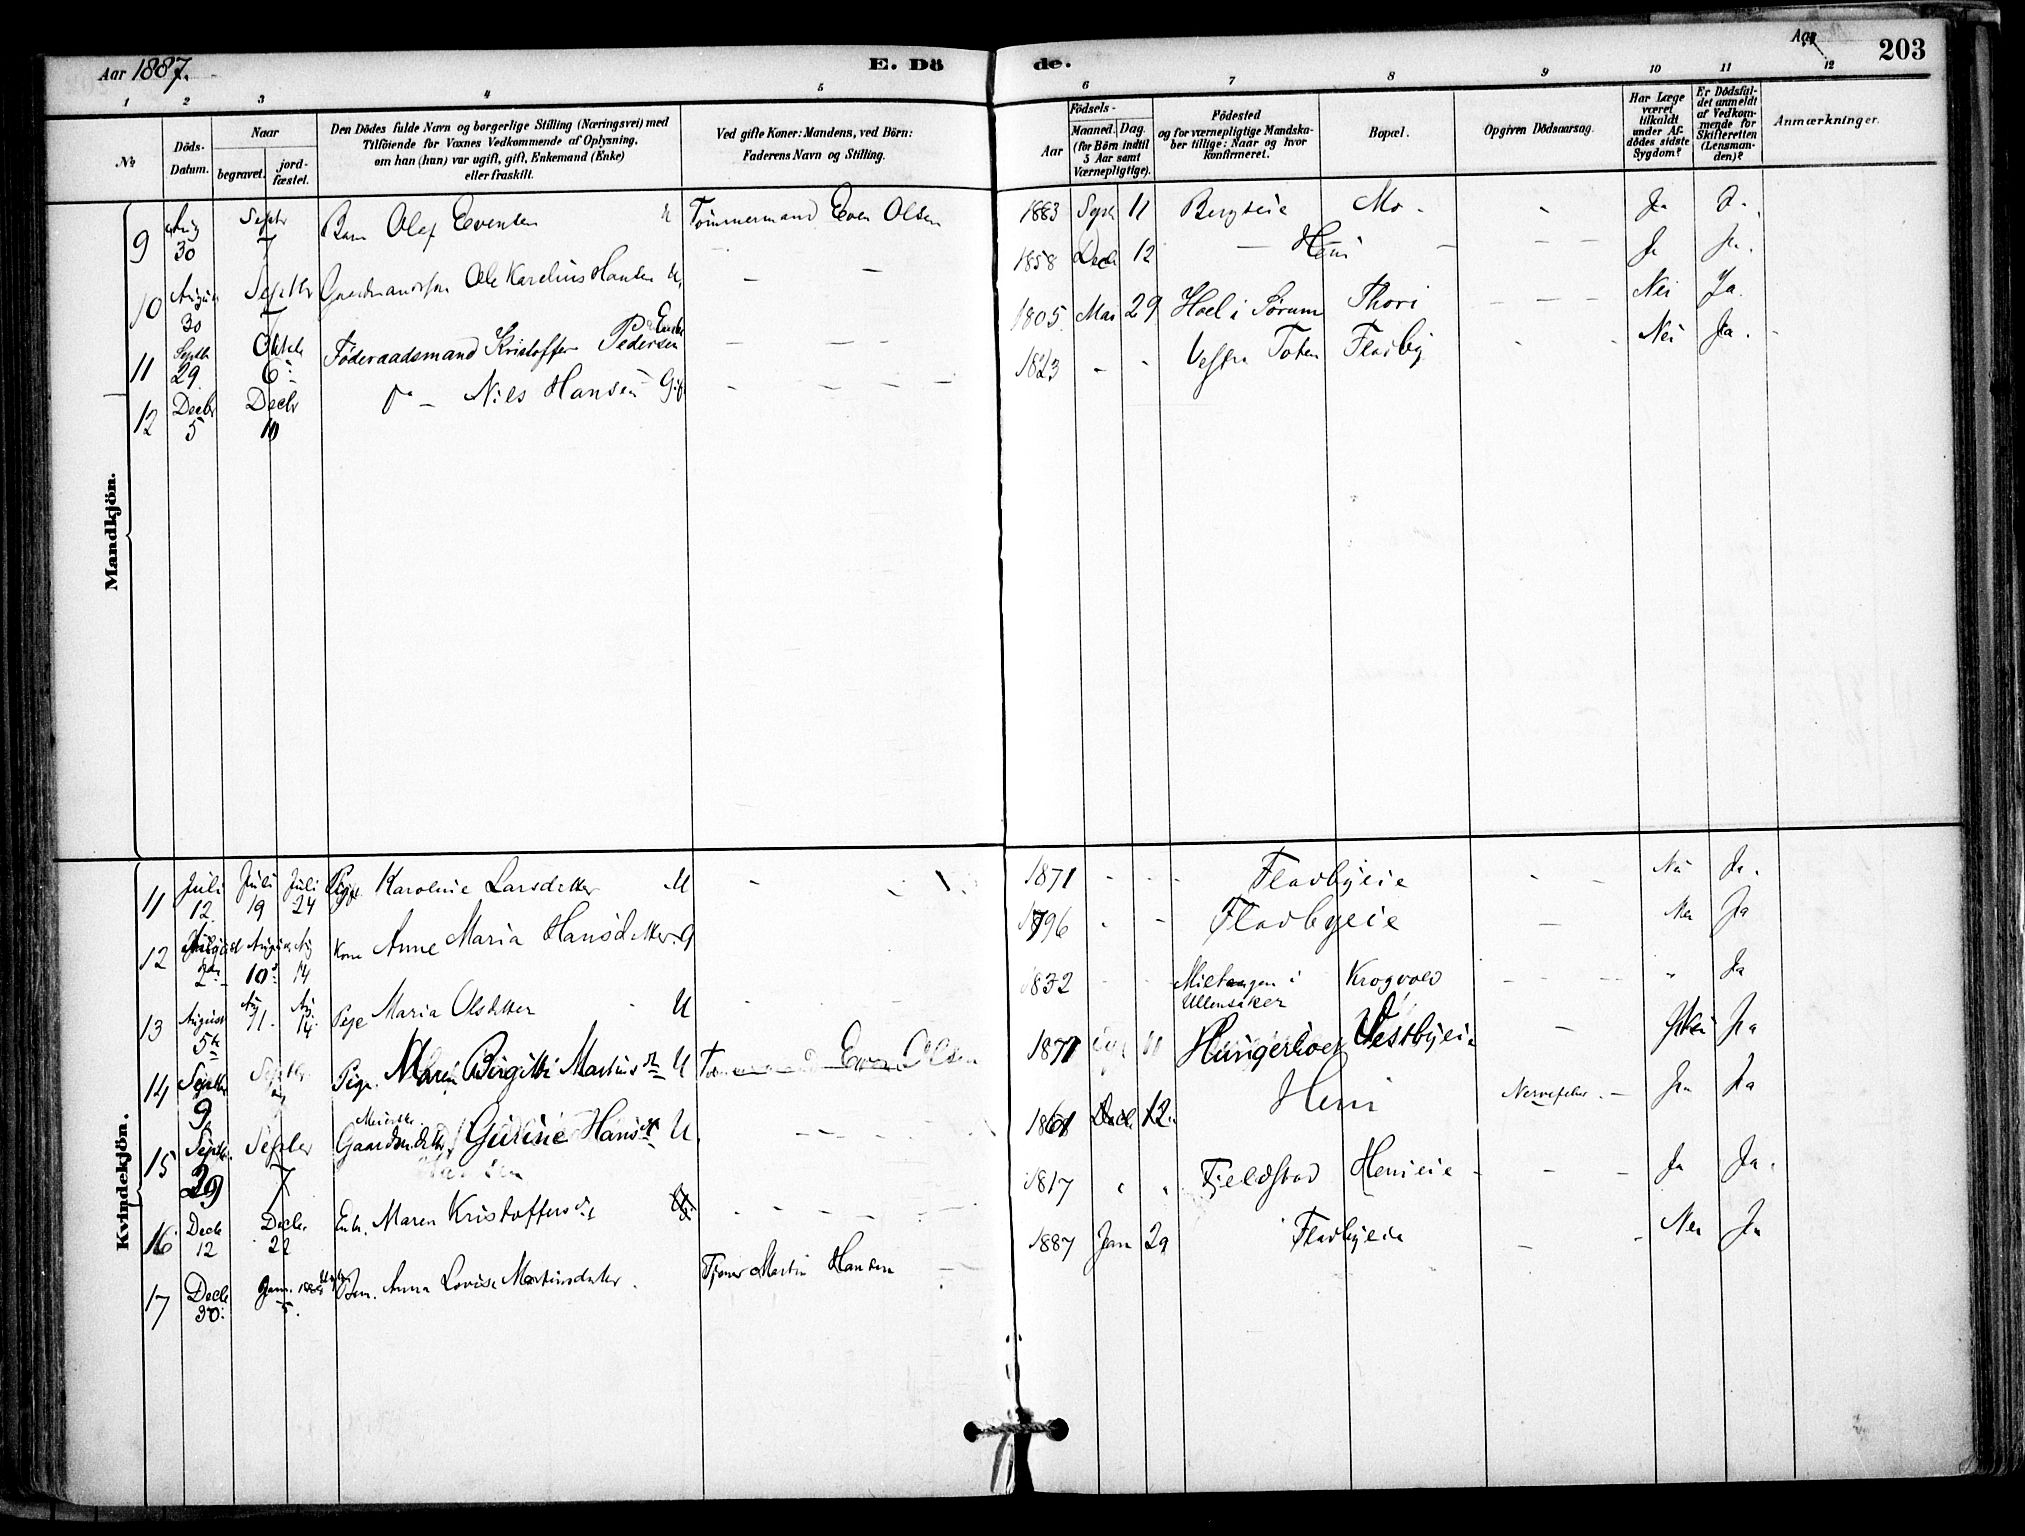 Aar 1887.
E. Dö de.
Aar
203
1 2 3 4 5 6 7 8 9 10 11 12
No
Döds-Datum.
Naar
begravet. jord-fæstet.
Den Dödes fulde Navn og borgerlige Stilling (Næringsvei) med
Tilföiende for Voxnes Vedkommende af Oplysning,
om han (hun) var ugift, gift, Enkemand (Enke)
eller fraskilt.
Ved gifte Koner: Mandens, ved Börn:
Faderens Navn og Stilling.
Födsels-
Aar Maaned. Dag.
(for Börn indtil
5 Aar samt
Værnepligtige).
Födested
og for værnepligtige Mandska-
ber tillige: Naar og hvor
konfirmeret.
Bopæl.
Opgiven Dödsaarsag.
Har Læge
været
tilkaldt
under Af-
dödes sidste
Sygdom?
Er Dödsfal-
det anmeldt
af Vedkom-
mende for
Skifteretten
(Lensman-
den)?
Anmærkninger.
Mandkjön.
9 Aug 30 Septr 7 Barn Olaf Evensen U Tømmermand Even Olsen 1883 Sept 11 Bergseie Mo Ja J.
10 August 30 Septbr 7 Gaardmandssøn Ole Karelius Hansen U 1858 Decb 12 Heni Ja Ja.
11 Septb 29 Oktob 6 Føderaadsmand Kristoffer Pedersen Enkem 1805 Mai 29 Hoel i Sørum Thori Nei Ja.
12 Decbr 5 Decbr 10 Do Niels Hansen Gift 1823 Vestre Toten Fladby Nei Ja.
Kvindekjön.
11 Juli 12 Juli 19 Juli 24 Pige Karoline Larsdatter U 1871 Fladbyeie Nei Ja.
12 August 2den August 10de Aug 14 Kone Anne Maria Hansdatter G 1796 Fladbyeie Nei Ja
13 August 5te Aug 11. Aug. 14. Pige Maria Olsdatter U 1832 Ullensaker Krogvold Ja
14 Septbr 9 Septbr Pige Maren Birgitte Martinsdt U Even Olsen Hungerhoel Vestbyeie Nei Ja
15 Septbr. 29 Septbr 7 Meierske Gaardmdatter Guline Hansdt U 1861 12. Heni Nervefeber. Ja Ja
16 Decb 12 Decbr. 22 Enke. Maren Kristoffersdt 1817 Fjeldstad Henieie Ja Ja.
17 Decb 30. Jan. 1888 5. Barn. Anna Lovise Martinsdatter. Tjener Martin Hansen 1887 Jan 29 Fladbyeie Nei Ja